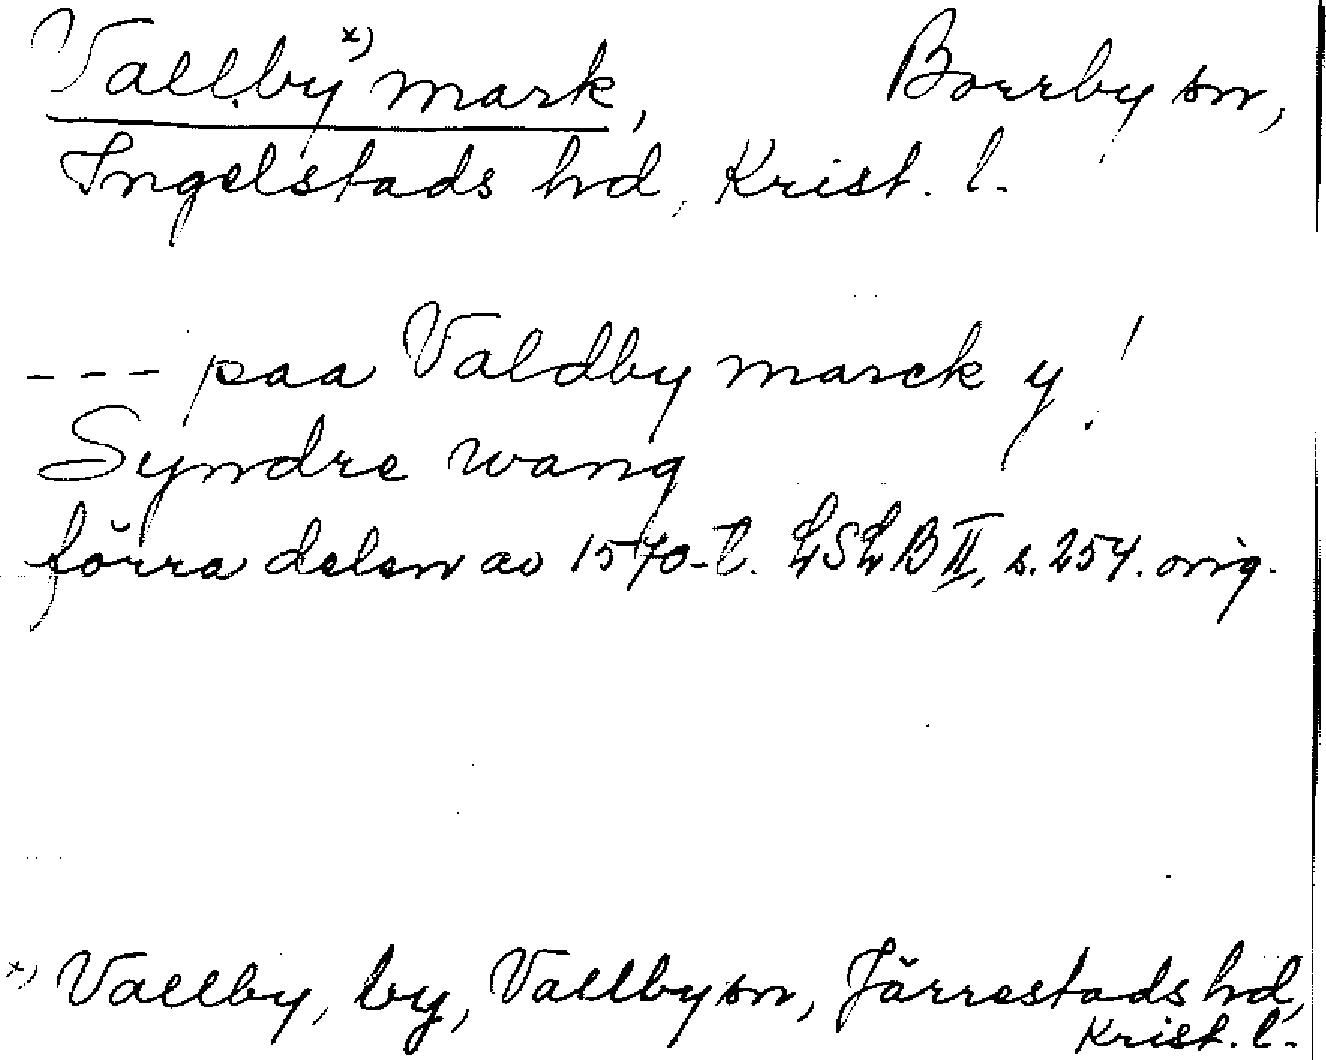 Vallby x) mark, Borrby sn,
Ingelstads hd, Krist. l.
--- paa Valdby marck y !
Syndre wang
förra delen av 1570-t. LSLB II, s. 254. orig.
x) Vallby, by, Vallby sn, Järrestads hd,
Krist. l.